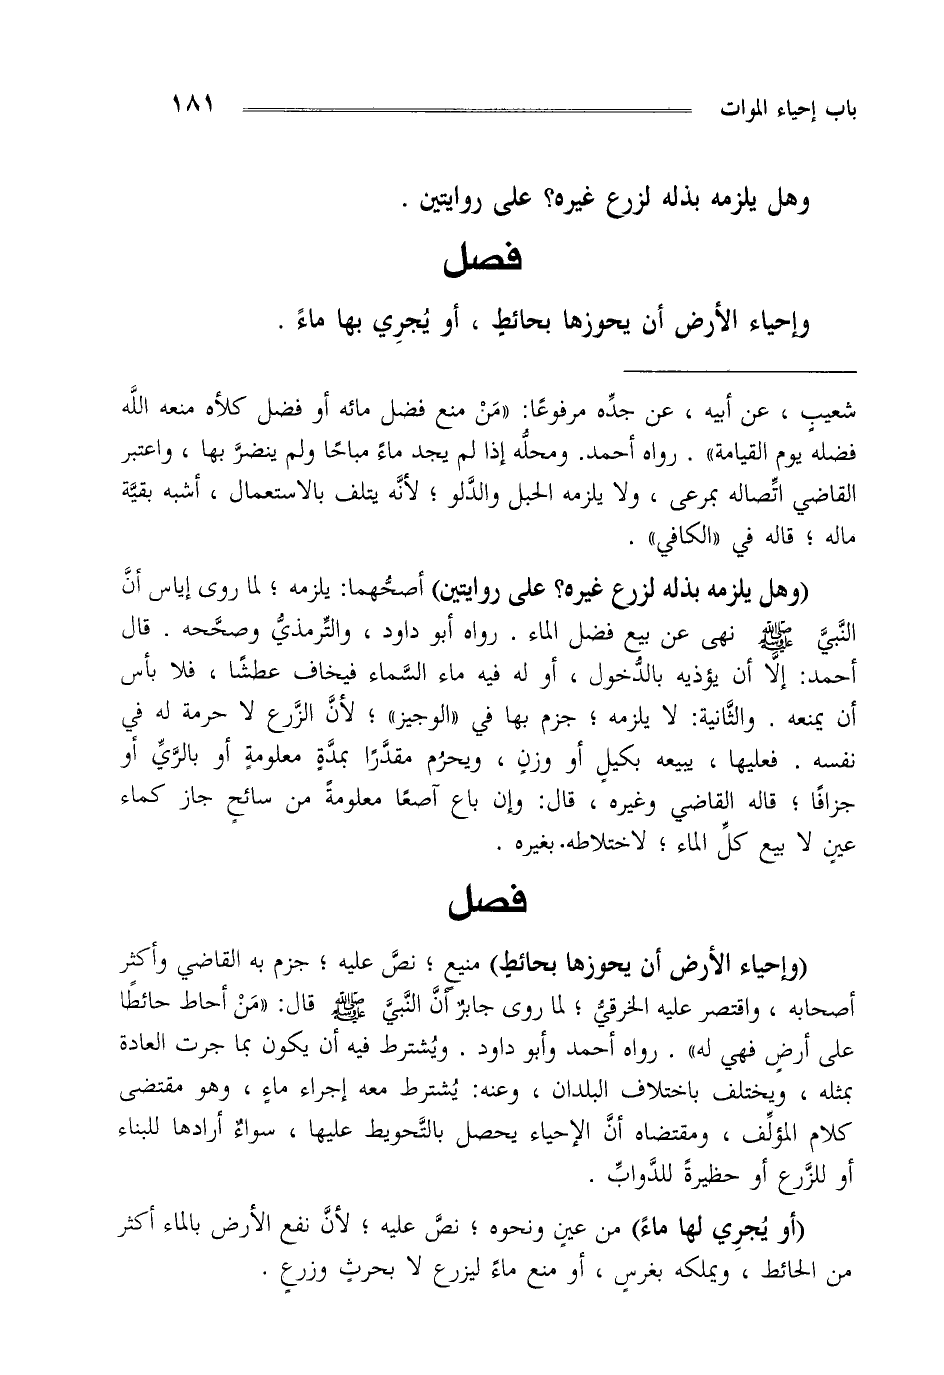 باب إحياء الموات ١٨١
وهل يلزمه بذله لزرع غيره؟ على روايتين .
فصل
وإحياء الأرض أن يحوزها بحائطٍ ، أو يُجرِي بها ماءً .
شعيبٍ ، عن أبيه ، عن جدِّه مرفوعًا: «مَنْ منع فضل مائه أو فضل كلأه منعه اللَّه
فضله يوم القيامة» . رواه أحمد. ومحلُّه إذا لم يجد ماءً مباحًا ولم ينضرَّ بها ، واعتبر
القاضي اتِّصاله بمرعى ، ولا يلزمه الحبل والدَّلو ؛ لأنَّه يتلف بالاستعمال ، أشبه بقيَّة
ماله ؛ قاله في «الكافي» .
(وهل يلزمه بذله لزرع غيره؟ على روايتين) أصحُّهما: يلزمه ؛ لما روى إياس أنَّ
النَّبيَّ ﷺ نهى عن بيع فضل الماء . رواه أبو داود ، والتِّرمذيُّ وصحَّحه . قال
أحمد: إلَّا أن يؤذيه بالدُّخول ، أو له فيه ماء السَّماء فيخاف عطشًا ، فلا بأس
أن يمنعه . والثَّانية: لا يلزمه ؛ جزم بها في «الوجيز» ؛ لأنَّ الزَّرع لا حرمة له في
نفسه . فعليها ، يبيعه بكيلٍ أو وزنٍ ، ويحرُم مقدَّرًا بمدَّةٍ معلومةٍ أو بالرَّيِّ أو
جزافًا ؛ قاله القاضي وغيره ، قال: وإن باع آصعًا معلومةً من سائحٍ جاز كماء
عينٍ لا بيع كلِّ الماء ؛ لاختلاطه.بغيره .
فصل
(وإحياء الأرض أن يحوزها بحائطٍ) منيعٍ ؛ نصَّ عليه ؛ جزم به القاضي وأكثر
أصحابه ، واقتصر عليه الخرقيُّ ؛ لما روى جابرٌ أنَّ النَّبيَّ ﷺ قال: «مَنْ أحاط حائطًا
على أرضٍ فهي له» . رواه أحمد وأبو داود . ويُشترط فيه أن يكون بما جرت العادة
بمثله ، ويختلف باختلاف البلدان ، وعنه: يُشترط معه إجراء ماءٍ ، وهو مقتضى
كلام المؤلِّف ، ومقتضاه أنَّ الإحياء يحصل بالتَّحويط عليها ، سواءٌ أرادها للبناء
أو للزَّرع أو حظيرةً للدَّوابِّ .
(أو يُجرِي لها ماءً) من عينٍ ونحوه ؛ نصَّ عليه ؛ لأنَّ نفع الأرض بالماء أكثر
من الحائط ، ويملكه بغرسٍ ، أو منع ماءً ليزرع لا بحرثٍ وزرعٍ .